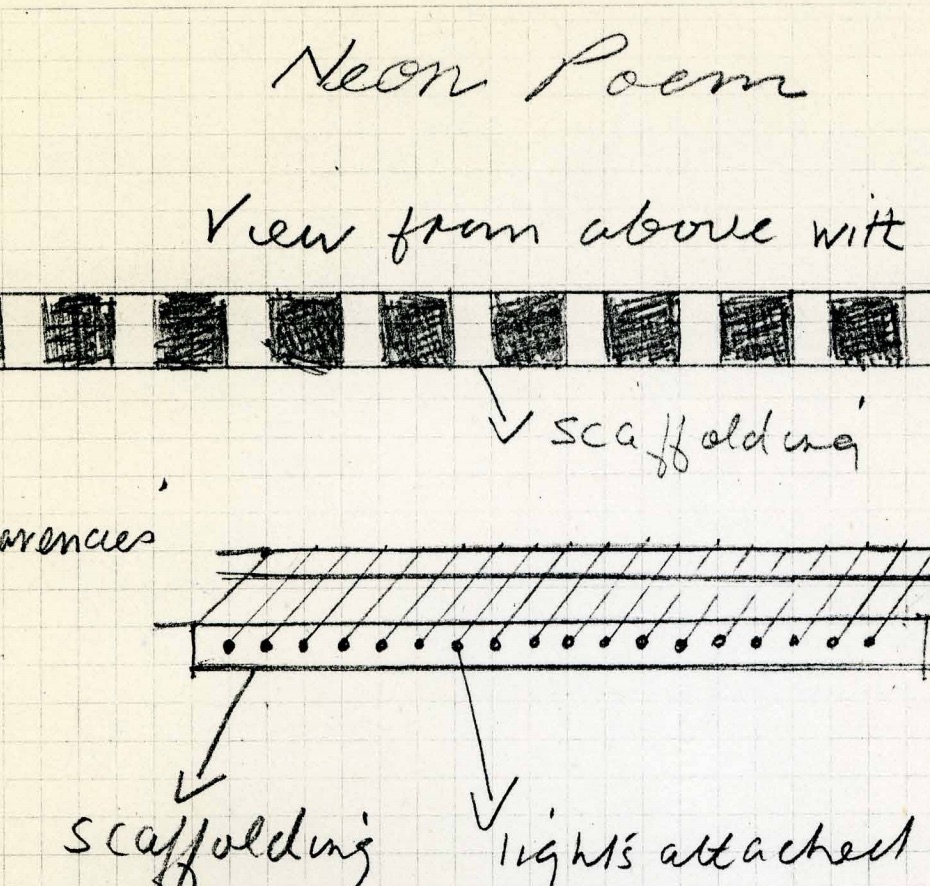 Neon Poem
View from above with
scaffolding
arencies
scaffolding
lights attached